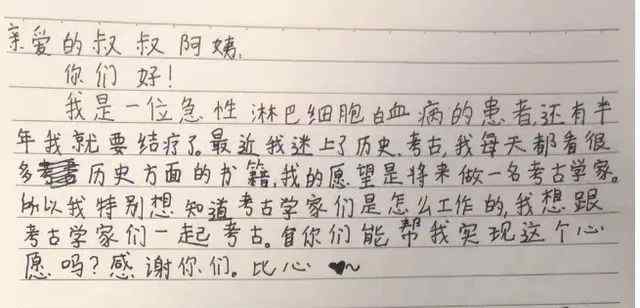 亲爱的叔叔阿姨,
你们好!
我是一位急性淋巴细胞白血病的患者,还有半
年我就要结疗了。最近我迷上了历史、考古,我每天都看很
多历史方面的书籍,我的愿望是将来做一名考古学家。
所以我特别想知道考古学家们是怎么工作的,我想跟
考古学家们一起考古。你们能帮我实现这个心
愿吗?感谢你们。比心